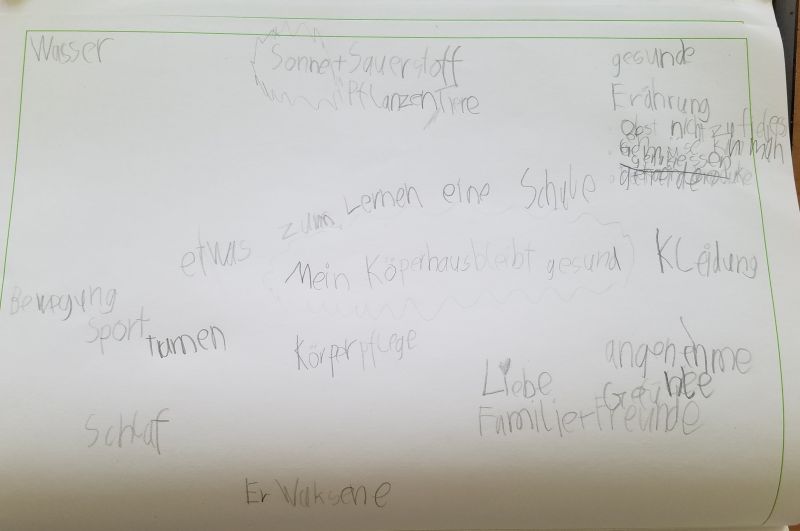 Wasser
Sonne+Sauerstoff
Pflanzen Tiere
gesunde
Erährung
Obst nicht zu
zum Lernen eine Schule
etwas
Mein Köperhaus bleibt gesund
KLeidung
Bewegung
Sport
turnen
Körperpflege
angenehme
Gefühle
Liebe
Familie+Freunde
Schlaf
ErWaksene